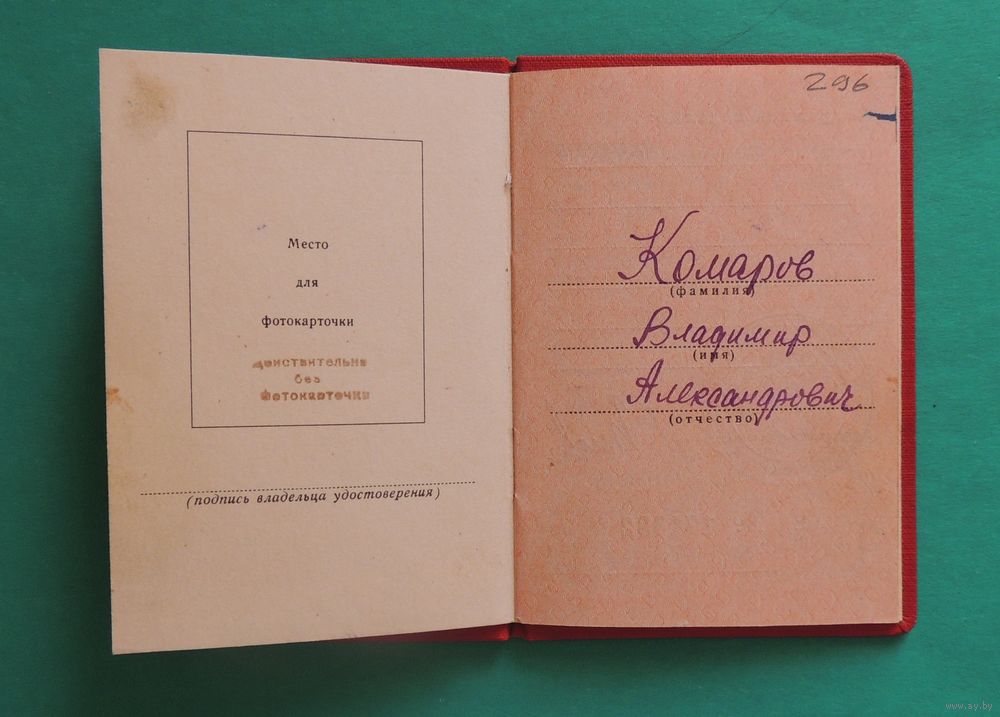 Место
для
фотокарточки
действительно
без
фотокарточки
(подпись владельца удостоверения)
296
Комаров
(фамилия)
Владимир
(имя)
Александрович
(отчество)
www.ay.by